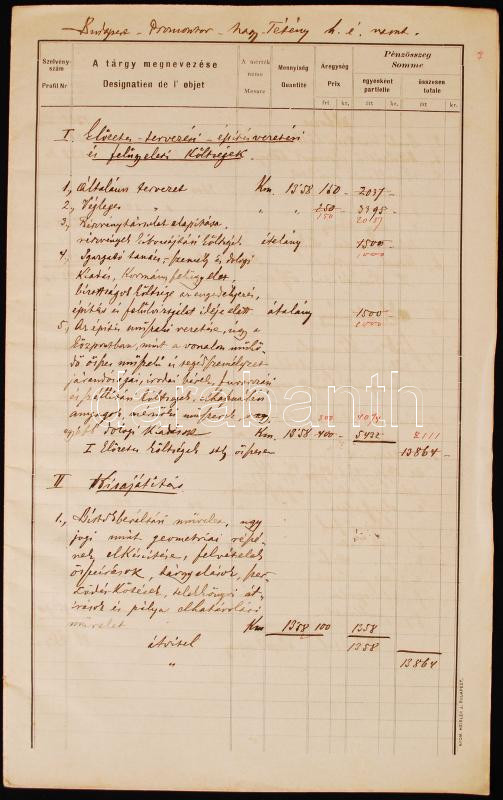 Budapest - Promontor - Nagy-Tétény h. é. vasut.
Szelvény-szám
Profil Nr
A tárgy megnevezése
Designation de l' objet
A mérték neme
Mesure
Mennyiség
Quantité
Aregység
Prix
frt kr.
Pénzösszeg
Somme
egyenként
partielle
frt kr.
összesen
totale
frt kr.
I. Előzetes - tervezési - építésvezetési
és felügyeleti költségek.
1., Általános tervezet Km. 13·58 150 — 2037 —
2., Végleges " " " 250 — 3395 —
150 2037
3., Részvénytársulat alapítása,
részvények kibocsájtási költségei átalány 1500 —
1000
4., Igazgató tanács személyi és dologi
kiadás, Kormány felügyelet
bizottságok költsége az engedélyezés,
építés és felülvizsgálat ideje alatt átalány 1500 —
5., Az építés műszaki vezetése, úgy a
központban, mint a vonalon műkö-
dő összes műszaki és segédszemélyzet
járandóságai, irodai bérek,
és költségek,
anyagok,
300 4074
dologi kiadások Km. 13·58 400 — 5432
I Előzetes költségek összesen 13864 —
II Kisajátítás
1.,
jogi mint geometriai része-
nek elkészítése, felvételek
összeírások, tárgyalások, szer-
ződéskötések, telekkönyvi át-
írások és pálya elhatárolási
művelet Km 13·58 100 1358
átvitel 1358
" 13864
karabanth